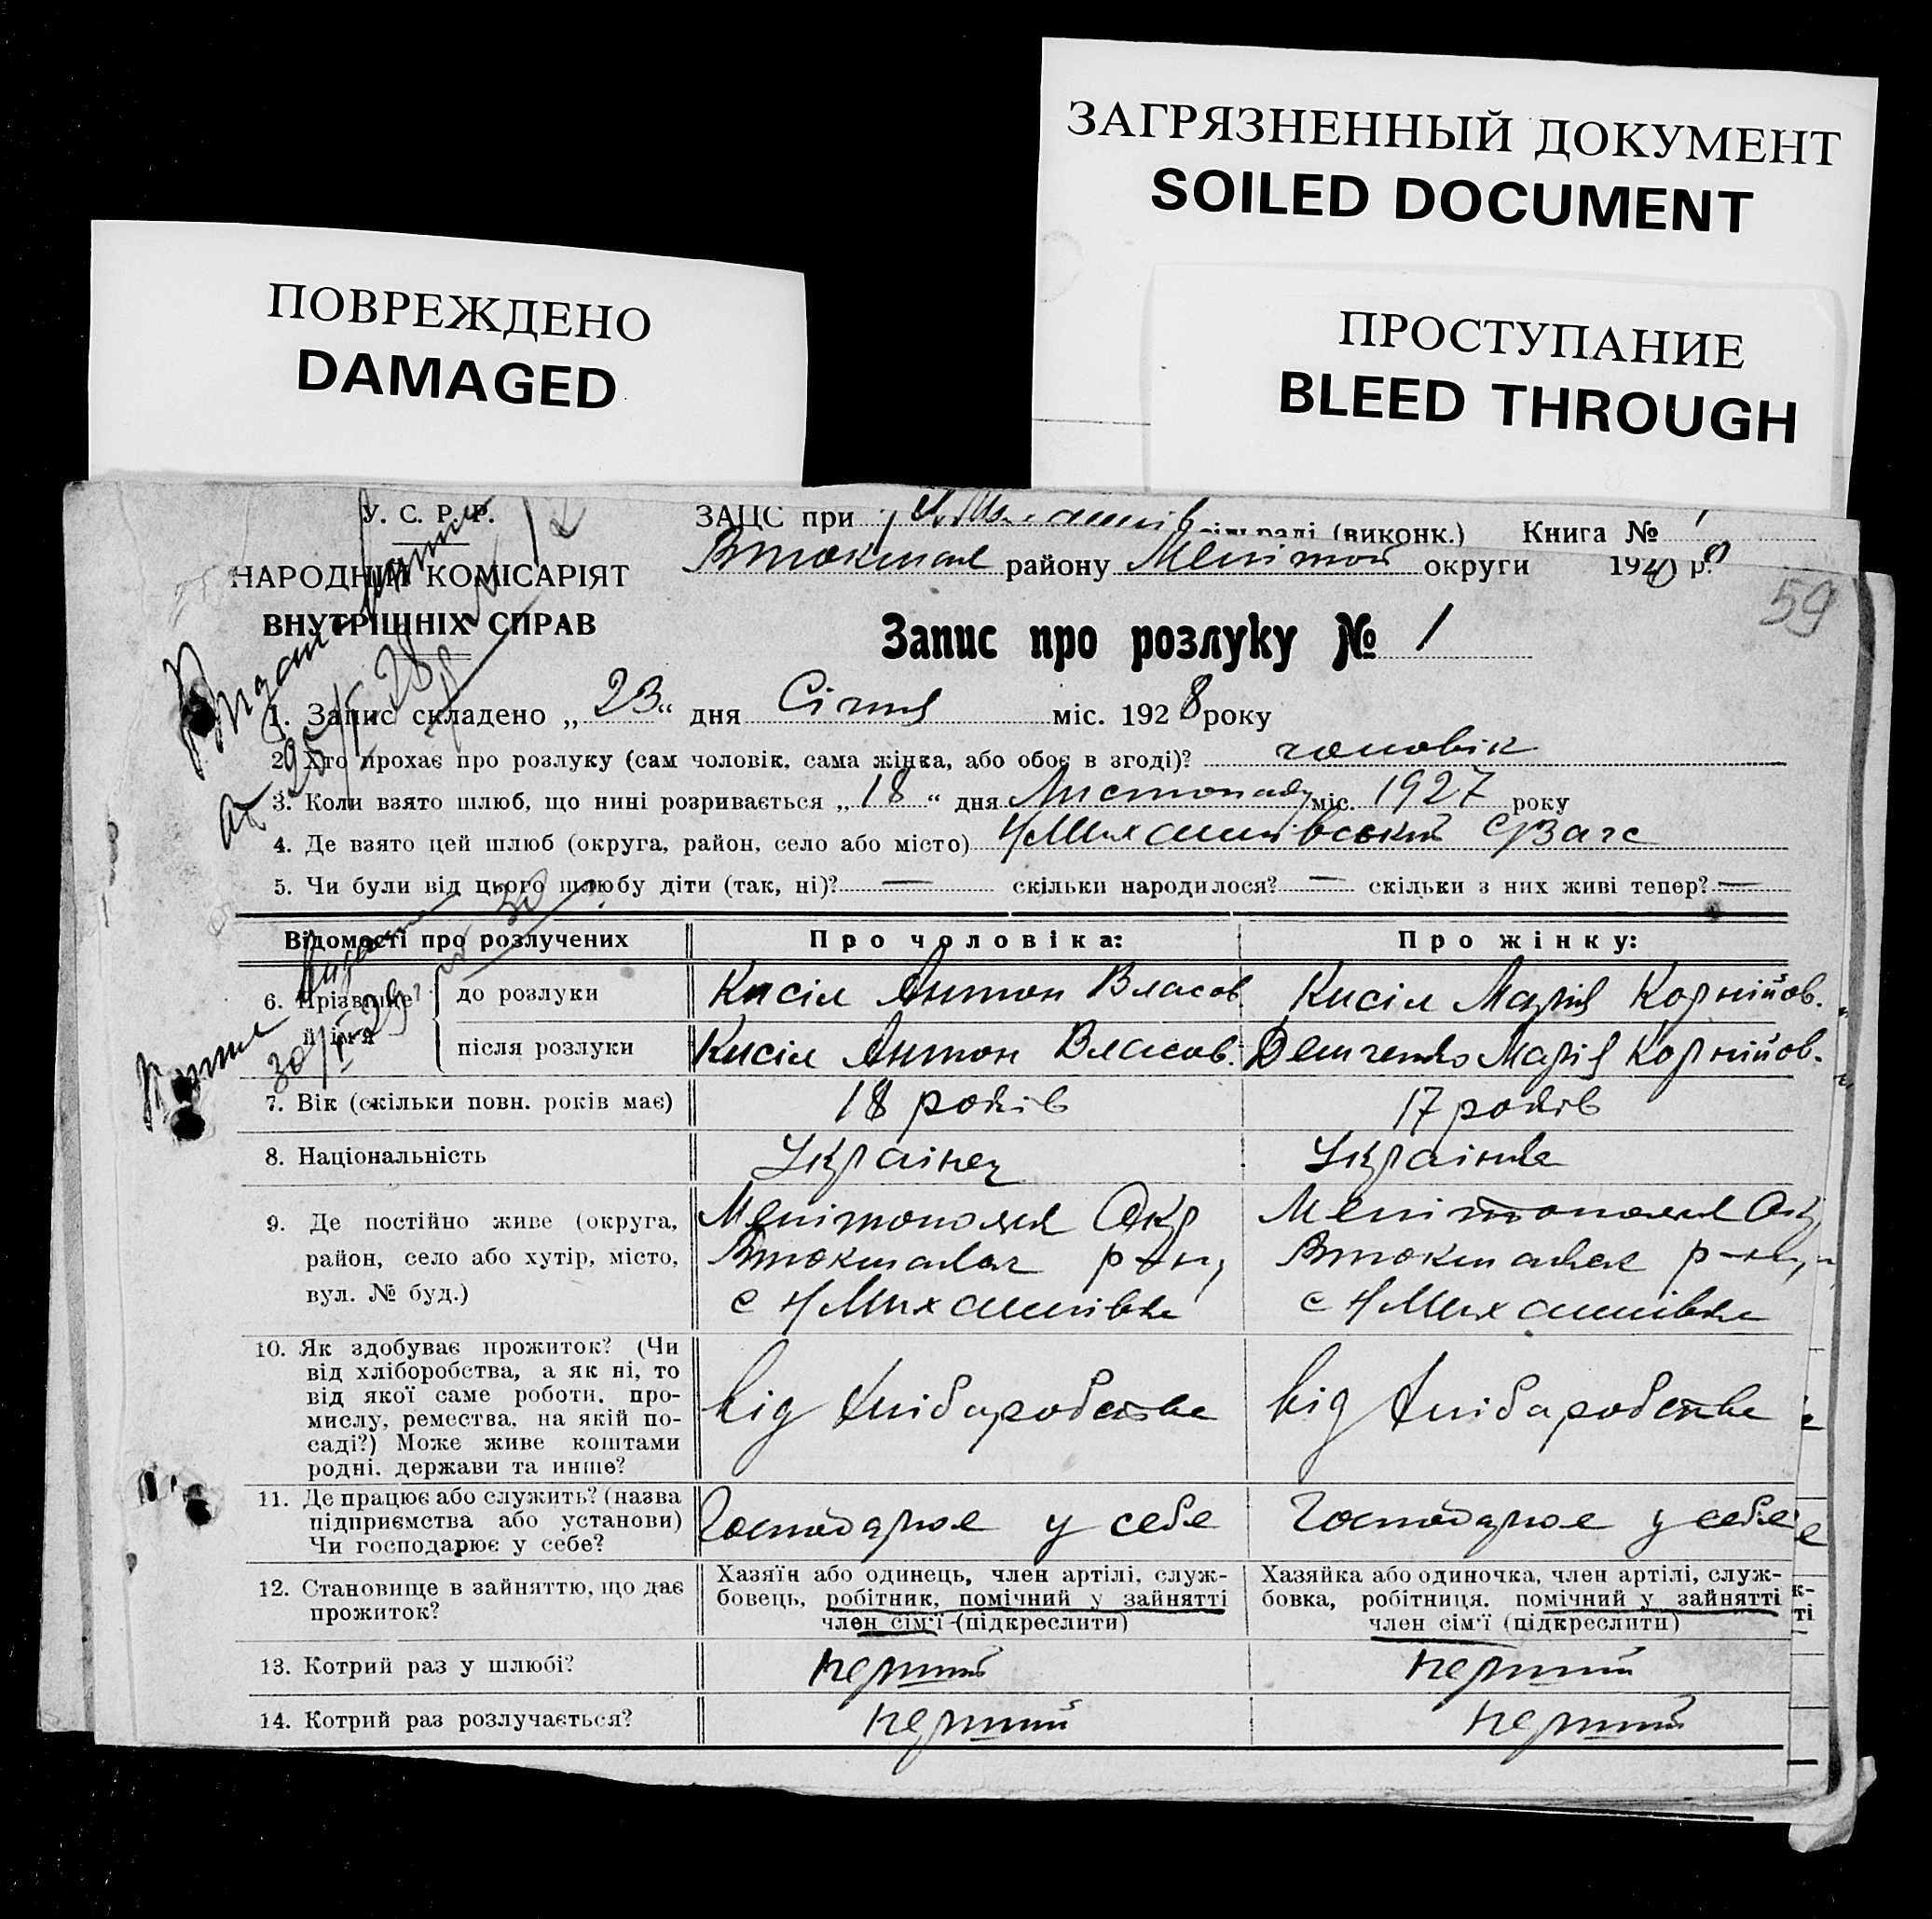 ЗАГРЯЗНЕННЫЙ ДОКУМЕНТ
SOILED DOCUMENT
ПОВРЕЖДЕНО
DAMAGED
ПРОСТУПАНИЕ
BLEED THROUGH
У. С. Р. Р.
НАРОДНІЙ КОМІСАРІЯТ
ВНУТРІШНІХ СПРАВ
59
ЗАЦС при сільраді (виконк.) Книга № 1
району округи 1928 р.
Запис про розлуку № 1
1. Запис складено „ 23 “ дня Січня міс. 1928 року
2. Хто прохає про розлуку (сам чоловік, сама жінка, або обоє в згоді)? чоловік
3. Коли взято шлюб, що нині розривається „ 18 “ дня Листопаду міс. 1927 року
4. Де взято цей шлюб (округа, район, село або місто) Н Михайлівський
5. Чи були від цього шлюбу діти (так, ні)? — скільки народилося? — скільки з них живі тепер? —
Відомості про розлучених Про чоловіка: Про жінку:
6. Прізвище й ім'я
до розлуки Кисіл Антон Власов Кисіл Марія Корнійов.
після розлуки Кисіл Антон Власов. Демченко Марія Корнійов.
7. Вік (скільки повн. років має) 18 років 17 років
8. Національність Українец Українка
9. Де постійно живе (округа, район, село або хутір, місто, вул. № буд.)
Мелітопольск Окр Мелітопольск Окр
р-ну, р-ну,
с Н Михайлівка с Н Михайлівка
10. Як здобуває прожиток? (Чи
від хліборобства, а як ні, то
від якої саме роботи, про-
мислу, ремества, на якій по-
саді?) Може живе коштами
родні, держави та инше?
від Хлібаробства від Хлібаробства
11. Де працює або служить? (назва
підприємства або установи)
Чи господарює у себе?
Господарює у себе Господарює у себе
12. Становище в зайняттю, що дає
прожиток?
Хазяїн або одинець, член артілі, служ-
бовець, робітник, помічний у зайнятті
член сім'ї (підкреслити)
Хазяйка або одиночка, член артілі, служ-
бовка, робітниця, помічний у зайнятті
член сім'ї (підкреслити)
13. Котрий раз у шлюбі? перший перший
14. Котрий раз розлучається? перший перший